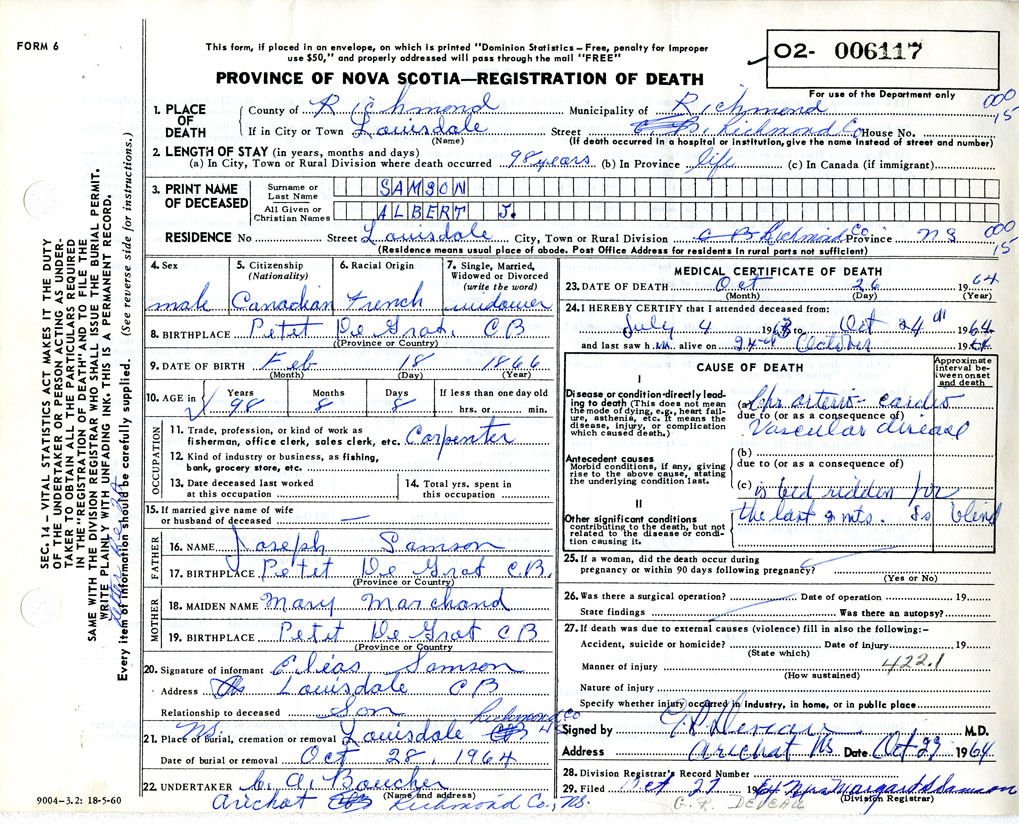 FORM 6
This form, if placed in an envelope, on which is printed "Dominion Statistics – Free, penalty for Improper
use $50," and properly addressed will pass through the mail "FREE"
PROVINCE OF NOVA SCOTIA—REGISTRATION OF DEATH
02- 006117
For use of the Department only
000
15
1. PLACE OF DEATH County of Richmond Municipality of Richmond
If in City or Town Louisdale Street C B. Richmond Co House No.
(Name) (If death occurred in a hospital or institution, give the name instead of street and number)
2. LENGTH OF STAY (in years, months and days)
(a) In City, Town or Rural Division where death occurred 98 years (b) In Province life (c) In Canada (if immigrant)
3. PRINT NAME OF DECEASED
Surname or Last Name SAMSON
All Given or Christian Names ALBERT J.
000
15
RESIDENCE No Street Louisdale City, Town or Rural Division C B Richmond Co Province N S
(Residence means usual place of abode. Post Office Address for residents in rural parts not sufficient)
4. Sex male
5. Citizenship (Nationality) Canadian
6. Racial Origin French
7. Single, Married, Widowed or Divorced (write the word) widower
8. BIRTHPLACE Petet De Grat, C B
(Province or Country)
9. DATE OF BIRTH Feb 18 1866
(Month) (Day) (Year)
10. AGE in Years 98 Months 8 Days 8 If less than one day old hrs. or min.
OCCUPATION
11. Trade, profession, or kind of work as
fisherman, office clerk, sales clerk, etc. Carpenter
12. Kind of industry or business, as fishing,
bank, grocery store, etc.
13. Date deceased last worked
at this occupation
14. Total yrs. spent in
this occupation
15. If married give name of wife
or husband of deceased —
FATHER
16. NAME Joseph Samson
17. BIRTHPLACE Petet De Grat C B.
(Province or Country)
MOTHER
18. MAIDEN NAME Mary Marchand
19. BIRTHPLACE Petit De Grat C B
(Province or Country)
20. Signature of informant Elias Samson
Address Louisdale C B
Relationship to deceased Son
Richmond Co
NS.
21. Place of burial, cremation or removal Louisdale CB
Date of burial or removal Oct 28, 1964
22. UNDERTAKER C. A. Boucher
(Name and address)
Arichat CB Richmond Co., NS.
MEDICAL CERTIFICATE OF DEATH
23. DATE OF DEATH Oct 26 1964
(Month) (Day) (Year)
24. I HEREBY CERTIFY that I attended deceased from:
July 4 1963 to Oct 24th 1964
and last saw h im alive on 24th October 1964
CAUSE OF DEATH
Approximate interval between onset and death
I
Disease or condition directly leading to death (This does not mean the mode of dying, e.g., heart failure, asthenia, etc. It means the disease, injury, or complication which caused death.)
(a) Chr arterio-cardio
due to (or as a consequence of)
Vascular disease
Antecedent causes
Morbid conditions, if any, giving rise to the above cause, stating the underlying condition last.
(b)
due to (or as a consequence of)
(c) is bed ridden for
the last 9 mts. Is blind
II
Other significant conditions
contributing to the death, but not related to the disease or condition causing it.
25. If a woman, did the death occur during
pregnancy or within 90 days following pregnancy?
(Yes or No)
26. Was there a surgical operation? Date of operation 19
State findings Was there an autopsy?
27. If death was due to external causes (violence) fill in also the following:–
Accident, suicide or homicide? Date of injury 19
(State which)
Manner of injury 422.1
(How sustained)
Nature of injury
Specify whether injury occurred in Industry, in home, or in public place
Signed by G. R. Deveau M.D.
Address Arichat NS Date Oct 27 1964
28. Division Registrar's Record Number
29. Filed Oct 27 1964 Mrs Margaret D Samson
(Division Registrar)
G. R. DEVEAU
SEC. 14 – VITAL STATISTICS ACT MAKES IT THE DUTY
OF THE UNDERTAKER OR PERSON ACTING AS UNDER-
TAKER TO OBTAIN ALL THE PARTICULARS REQUIRED
IN THE "REGISTRATION OF DEATH" AND TO FILE THE
SAME WITH THE DIVISION REGISTRAR WHO SHALL ISSUE THE BURIAL PERMIT.
WRITE PLAINLY WITH UNFADING INK. THIS IS A PERMANENT RECORD.
Every item of information should be carefully supplied. (See reverse side for instructions.)
9004-3.2: 18-5-60